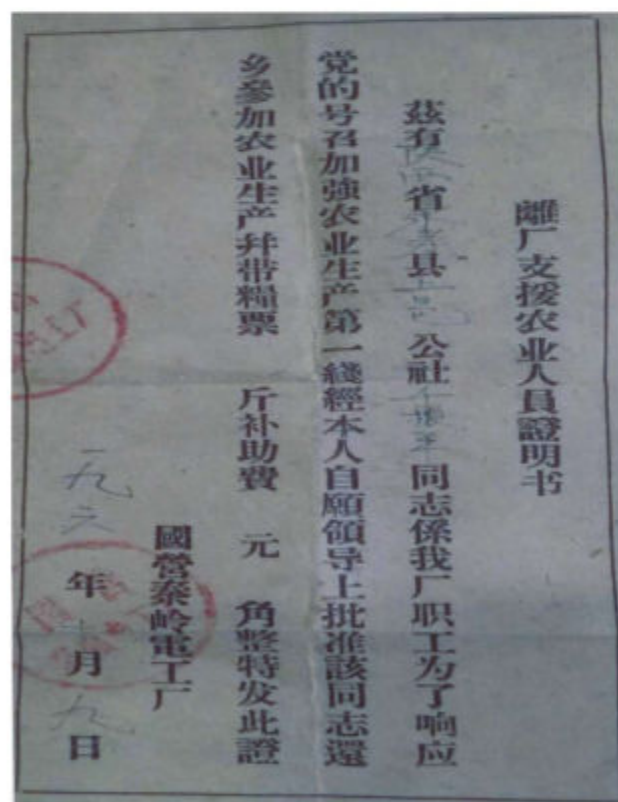 離厂支援农业人員證明书
茲有陕西省县公社同志係我厂职工为了响应
党的号召加強农业生产第一綫經本人自願領导上批准該同志還
乡參加农业生产并带糧票 斤补助費 元 角整特发此證
國营秦岭電工厂
一九六 年 十月九日